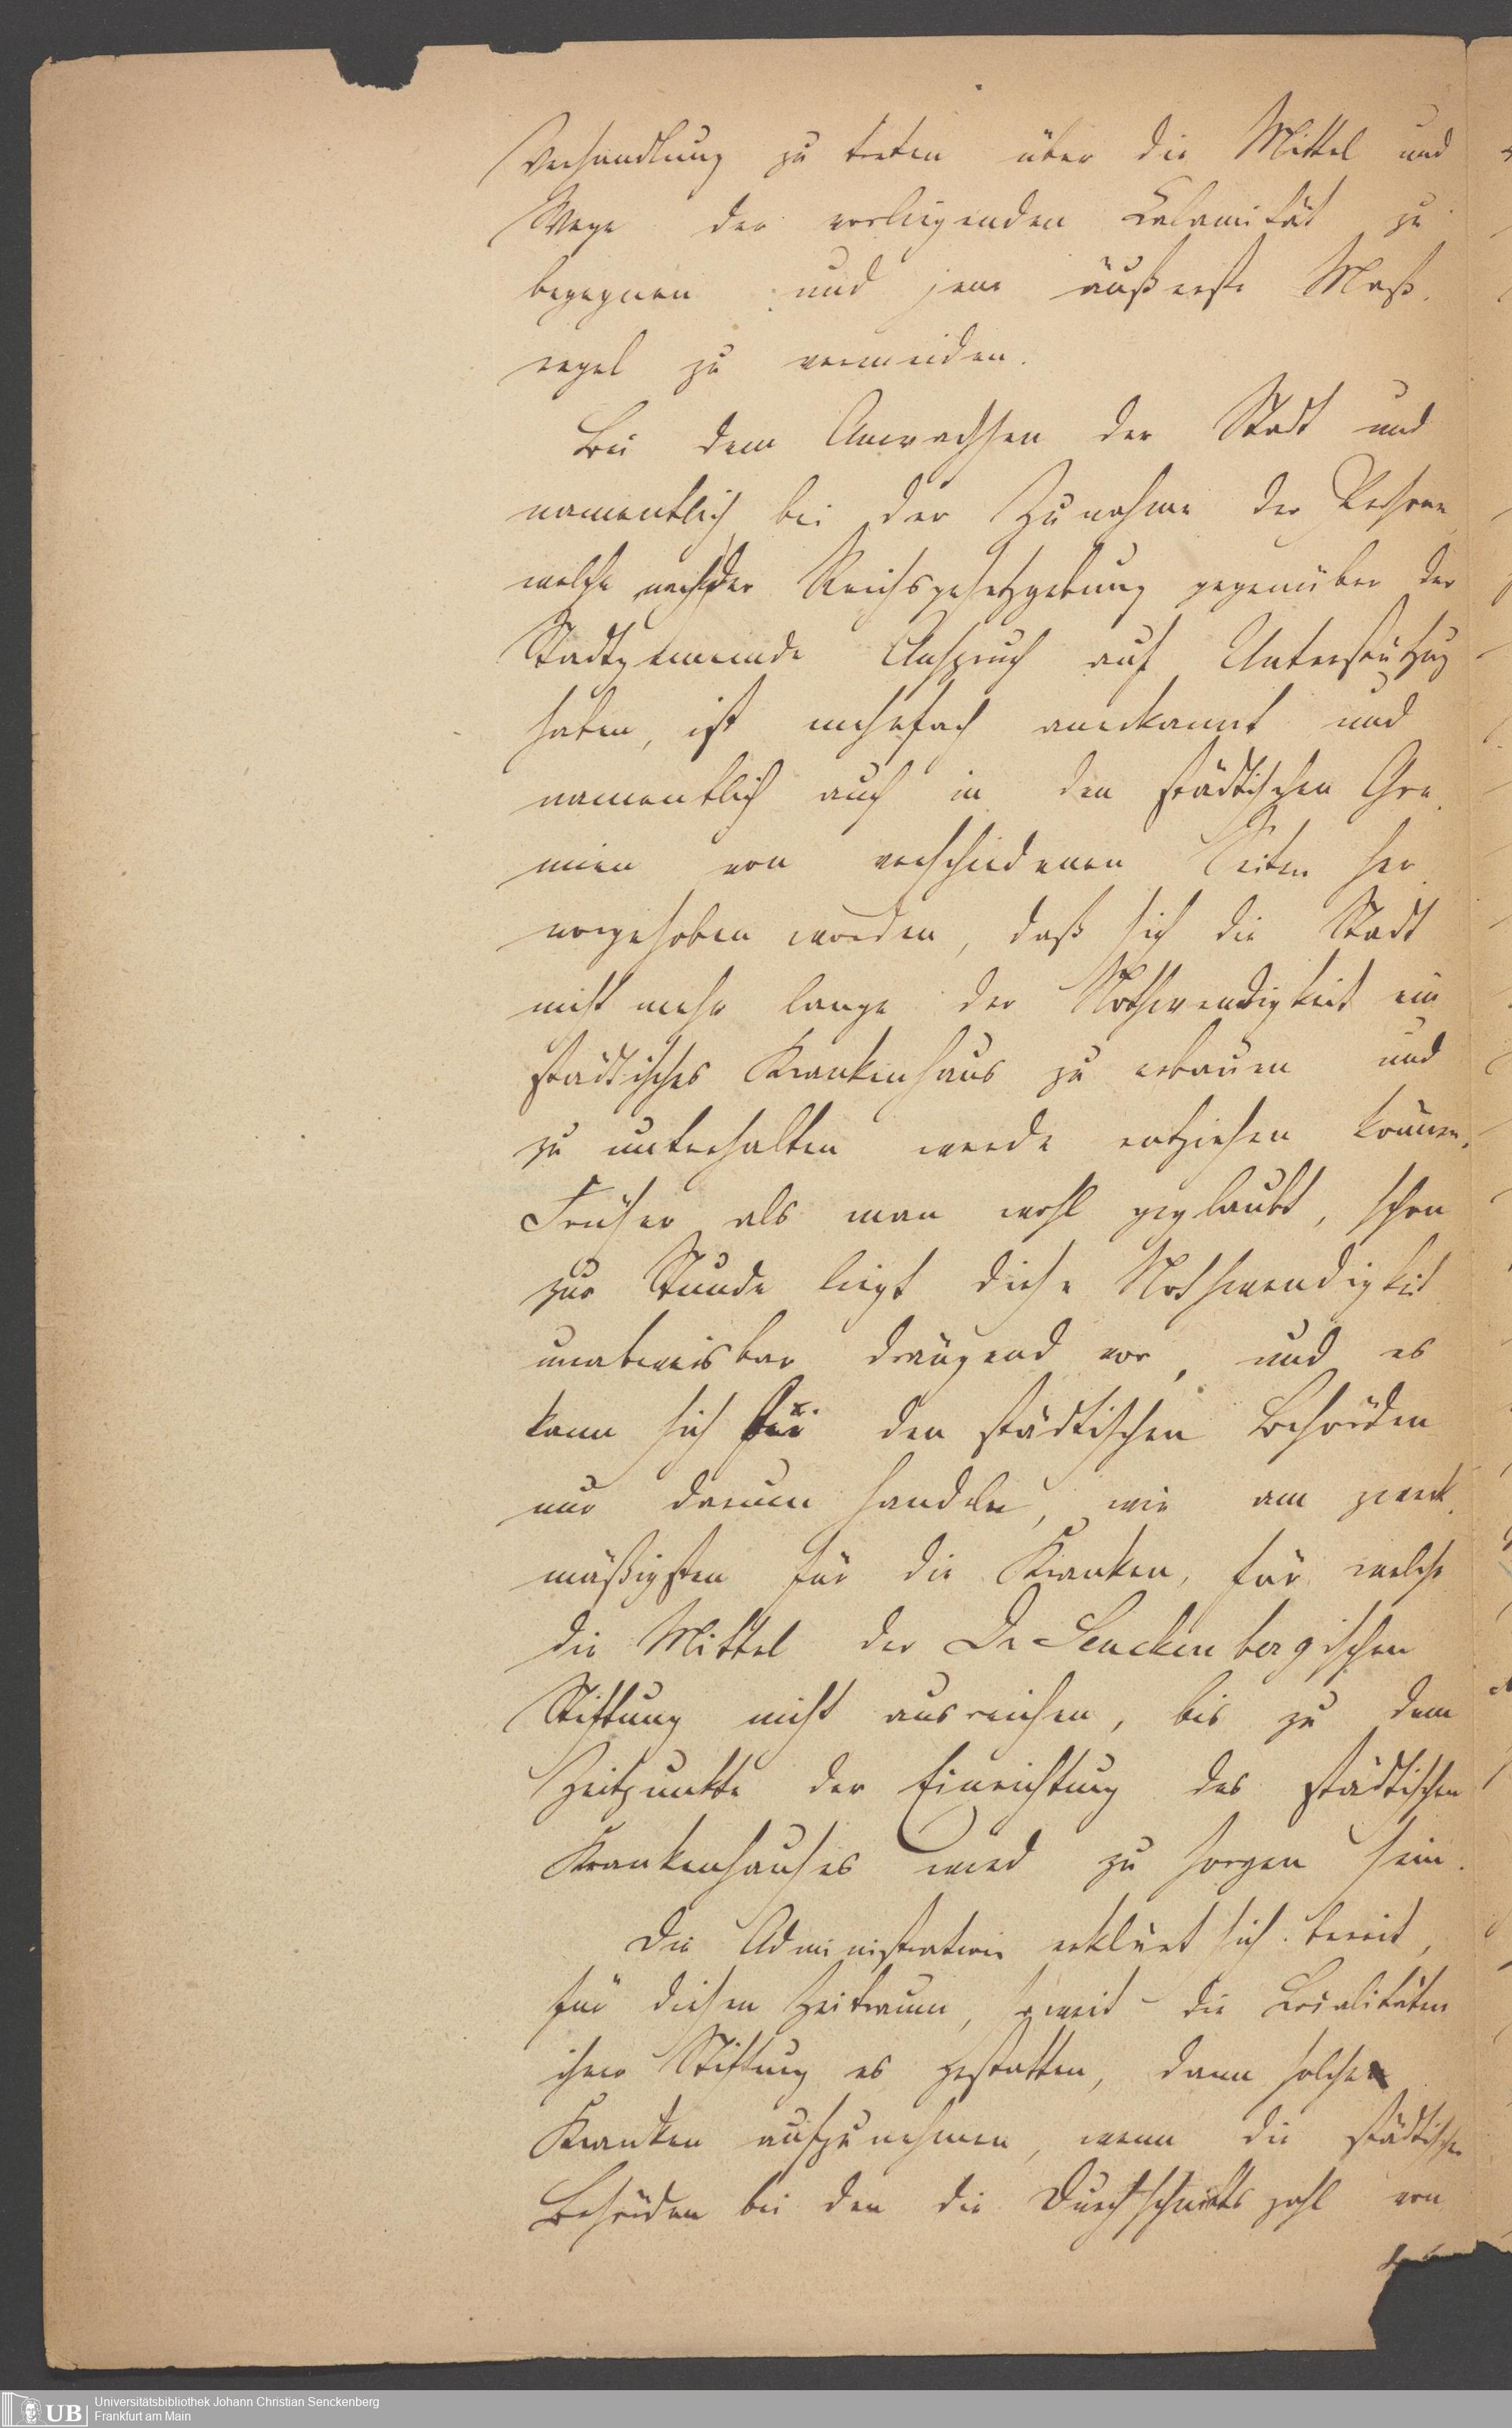 Verhandlung zu treten über die Mittel und
Wege der vorliegenden Calamität zu
begegnen und jene äußerste Maß-
regel zu vermeiden.
Bei dem Anwachsen der Stadt und
namentlich bei der Zunahme der Personen
welche nach der Reichsgesetzgebung gegenüber der
Stadtgemeinde Anspruch auf Unterstützung
haben, ist mehrfach anerkannt und
namentlich auch in den städtischen Gre-
mien von verschiedenen Seiten her-
vorgehoben worden, daß sich die Stadt
nicht mehr lange der Nothwendigkeit ein
städtisches Krankenhaus zu erbauen und
zu unterhalten werde entziehen können.
Früher als man wohl geglaubt, schon
zur Stunde liegt diese Nothwendigkeit
unabweisbar drängend vor, und es
kann sich für den städtischen Behörden
nur darum handeln, wie am zweck-
mäßigsten für die Kranken, für welche
die Mittel der Dr Senckenbergischen
Stiftung nicht ausreichen, bis zu dem
Zeitpunkte der Einrichtung des städtischen
Krankenhauses wird zu sorgen sein.
Die Administration erklärt sich bereit,
für diesen Zeitraum, soweit die Localitäten
ihrer Stiftung es gestatten, dann solche
Kranken aufzunehmen, wenn die städtischen
Behörden bei den die Durchschnittszahl von
Universitätsbibliothek Johann Christian Senckenberg
Frankfurt am Main
UB